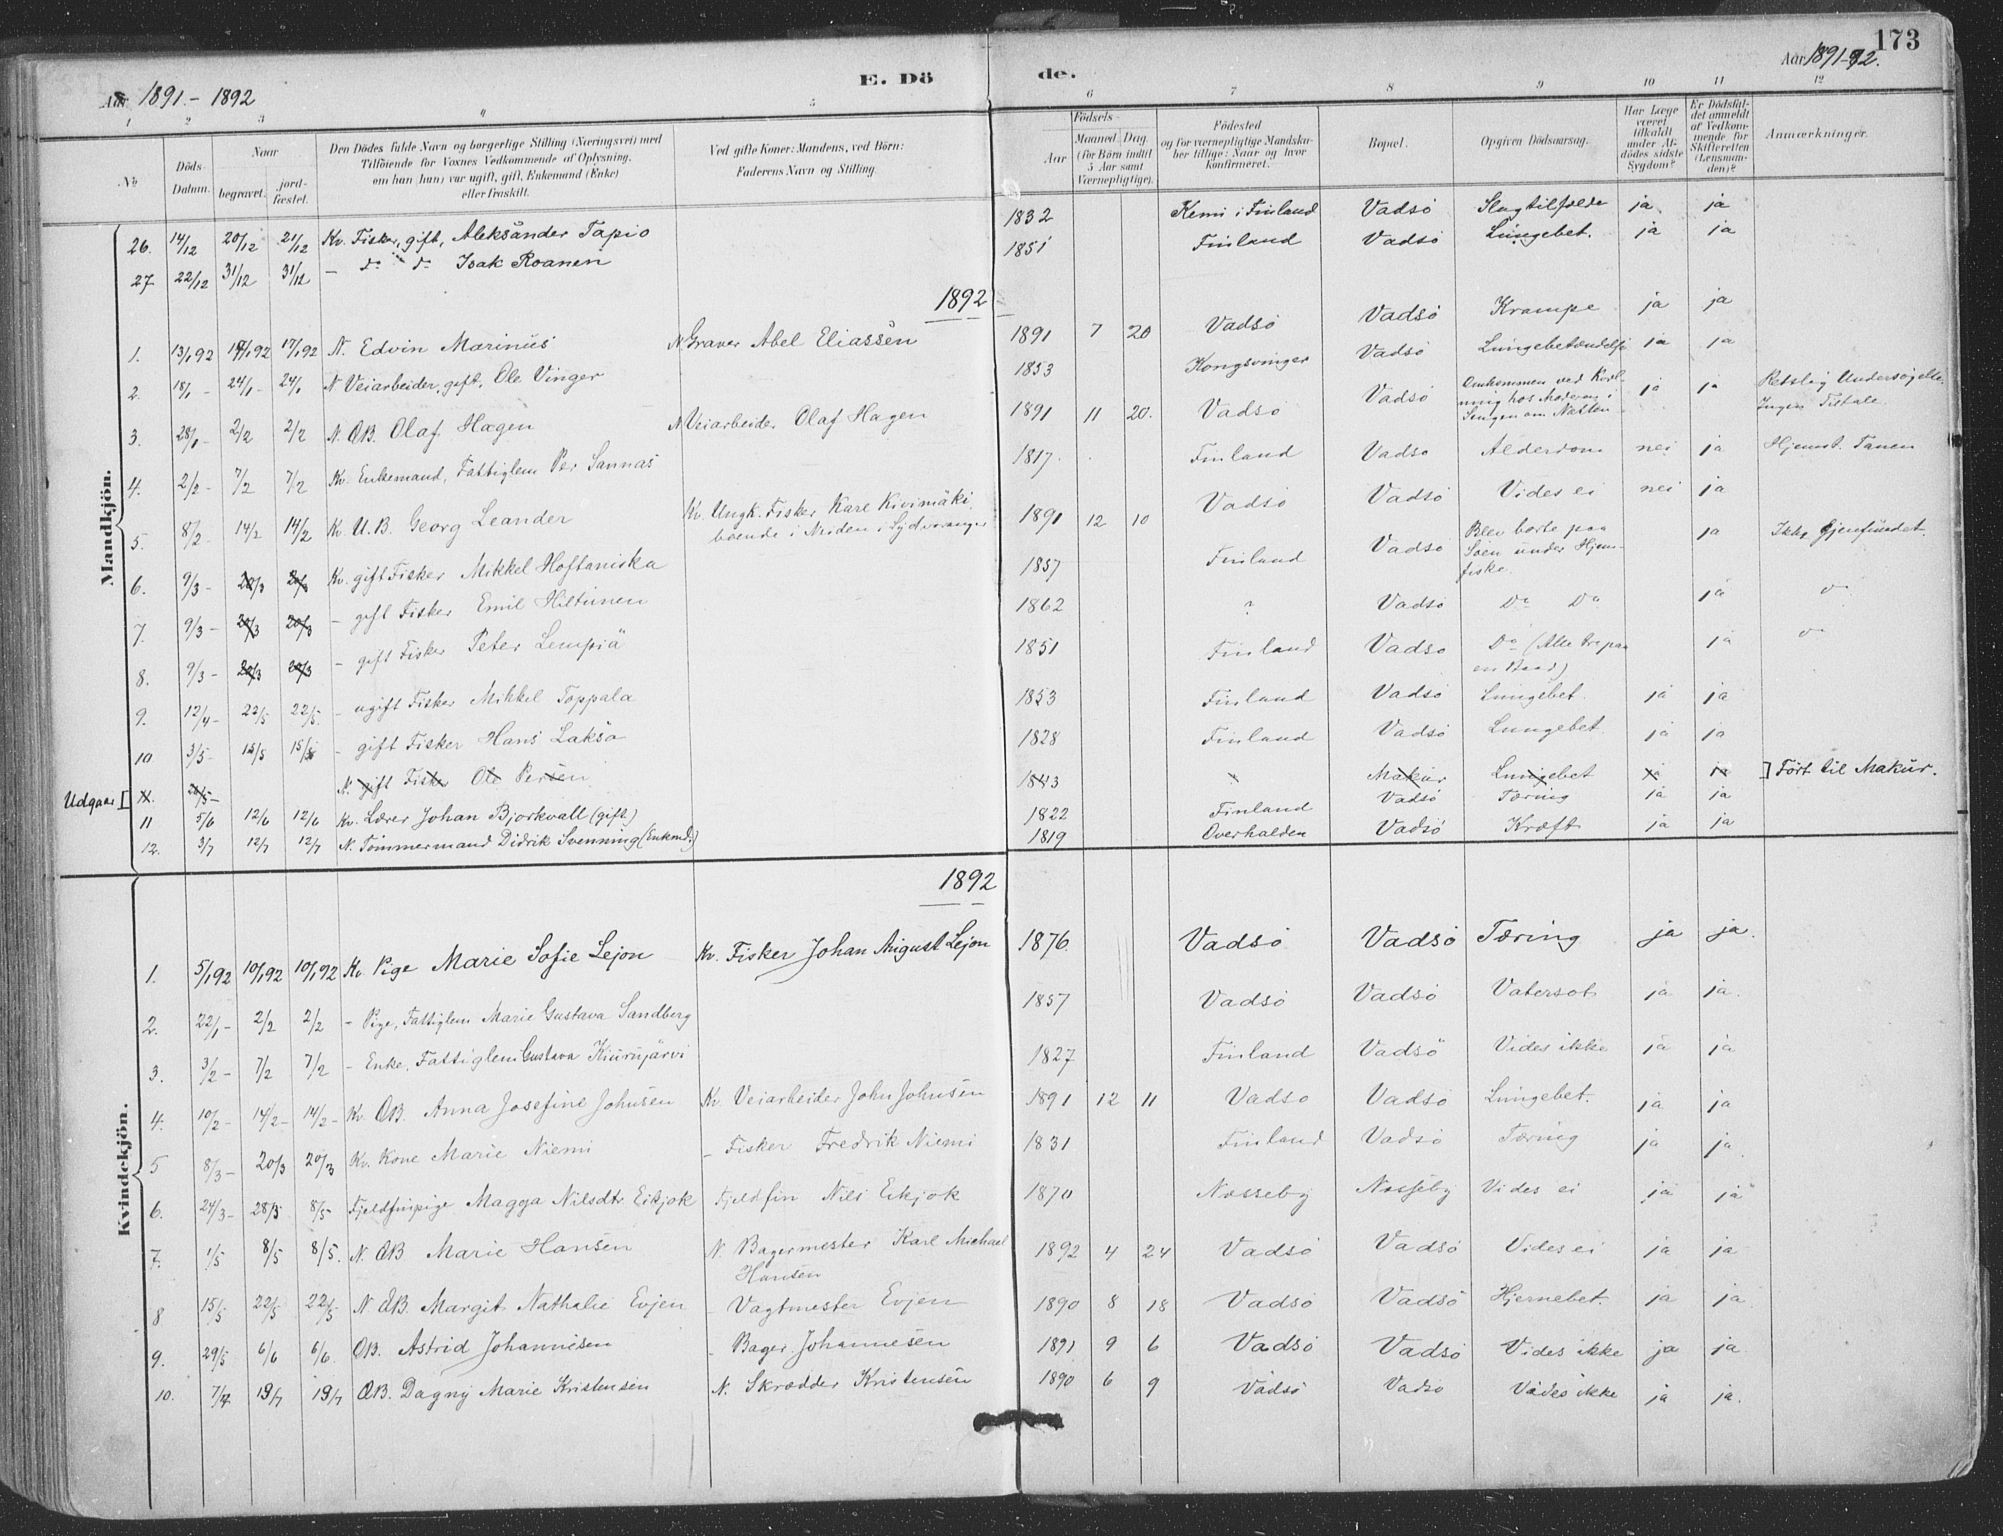 173
Aar 1891-92.
Aar 1891 - 1892
E. Dö de.
1 2 3 4 5 6 7 8 9 10 11 12
No
Döds-Datum.
Naar
begravet.
jord-fæstet.
Den Dödes fulde Navn og borgerlige Stilling (Næringsvei) med
Tilföiende for Voxnes Vedkommende af Oplysning,
om han (hun) var ugift, gift, Enkemand (Enke)
eller fraskilt.
Ved gifte Koner: Mandens, ved Börn:
Faderens Navn og Stilling.
Födsels
Aar
Maaned Dag
(for Börn indtil
5 Aar samt
Værnepligtige).
Födested
og for værnepligtige Mandsku-
ber tillige: Naar og hvor
konfirmeret.
Bopæl.
Opgiven Dödsaarsag.
Har Læge
været
tilkaldt
under Af-
dödes sidste
Sygdom?
Er Dödsfal-
det anmeldt
af Vedkom-
mende for
Skifteretten
(Lensman-
den)?
Anmærkninger.
Mandkjön.
26. 14/12 20/12 21/12 Kv. Fisker, gift, Aleksander Tapio 1832 Kemi i Finland Vadsö Slagtilfælde ja ja
27 22/12 31/12 31/12 - do do Isak Roanen 1851 Finland Vadsö Lungebet. ja ja
1892
1. 13/1 92 17/1 92 17/1 92 N. Edvin Marinius N Graver Abel Eliassen 1891 7 20 Vadsö Vadsö Krampe ja ja
2. 18/1 - 24/1 - 24/1 N Veiarbeider, gift, Ole Vinger 1853 Kongsvinger Vadsö Lungebetændelse ja ja
3. 28/1 - 2/2 2/2 N. ÆB. Olaf Hagen N Veiarbeider Olaf Hagen 1891 11 20. Vadsö Vadsö Omkommen ved Kvæl-
ning hos Moderen i
Sengen om Natten ja ja Retslig Undersögelse.
Ingen Tiltale.
4. 2/2 - 7/2 7/2 Kv. Enkemand, Fattiglem Per Sannas 1817. Finland Vadsö Alderdom nei ja Hjemst. Tanen
5. 8/2 - 14/2 14/2 Kv U.B. Georg Leander Kv. Ungk. Fisker Karl Kivimäki,
boende i Neiden i Sydvaranger 1891 12 10 Vadsö Vadsö Vides ei nei ja
6. 9/3 - 20/3 20/3 Kv. gift Fisker Mikkel Hoftaniska 1857 Finland Vadsö Blev borte paa
Söen under Hjem-
fiske. ja Ikke gjenfundet.
7. 9/3 - 20/3 20/3 - gift Fisker Emil Hiltunen 1862 ? Vadsö Do Do ja do
8. 9/3 - 20/3 20/3 - gift Fisker Peter Lempiä 1851 Finland Vadsö Do (Alle tre paa
en Baad) ja do
9. 12/4 - 22/5 22/5. - ugift Fisker Mikkel Toppala 1853 Finland Vadsö Lungebet. ja ja
10 3/5 - 15/5 15/5 - gift Fisker Hans Lakso 1828 Finland Vadsö Lungebet. ja ja
Udgaar [ 11. 20/5 - N. gift Fisker Ole Persen 1843 Makur Lungebet ja ja ] Fört til Makur.
11 5/6 12/6 12/6 Kv. Lærer Johan Bjorkvall (gift) 1822 Finland Vadsö Tæring ja ja
12. 3/7 12/7 12/7 N. Tömmermand Didrik Svenning (Enkmd.) 1819 Overhalden Vadsö Kræft ja ja
Kvindekjön.
1892
1. 5/1 92 10/1 92 10/1 92 Kv Pige Marie Sofie Lejon Kv. Fisker Johan August Lejon 1876 Vadsö Vadsö Tæring ja ja.
2. 22/1 - 2/2 2/2 - Pige, Fattiglem Marie Gustava Sandberg 1857 Vadsö Vadsö Vatersot ja ja
3. 3/2 - 7/2 7/2 - Enke, Fattiglem Gustava Kiurujärvi 1827 Finland Vadsö Vides ikke ja ja
4. 10/2 - 14/2 - 14/2 - Kv. ÆB. Anna Josefine Johnsen Kv. Veiarbeider John Johnsen 1891 12 11 Vadsö Vadsö Lungebet. ja ja
5 8/3 - 20/3 20/3 Kv. Kone Marie Niemi - Fisker Fredrik Niemi 1831 Finland Vadsö Tæring ja ja.
6. 24/3 - 28/3 8/5 - Fjeldfinpige Magga Nilsdtr Eikjok Fjeldfin Nils Eikjok 1870 Nesseby Nesseby Vides ei ja ja
7. 1/5 8/5 8/5. N. ÆB Marie Hansen N. Bagermester Karl Michael
Hansen 1892 4 24 Vadsö Vadsö Vides ei ja ja
8 15/5 22/5 22/5 N ÆB. Margit Nathalie Evjen - Vagtmester Evjen 1890 8 18 Vadsö Vadsö Hjernebet. ja ja
9. 29/5 6/6 6/6. ÆB. Astrid Johannesen - Bager Johannesen 1891 9 6 Vadsö Vadsö Vides ikke ja ja
10. 7/7 19/7 19/7 ÆB. Dagny Marie Kristensen N. Skrædder Kristensen 1890 6 9 Vadsö Vadsö Vides ikke ja ja.